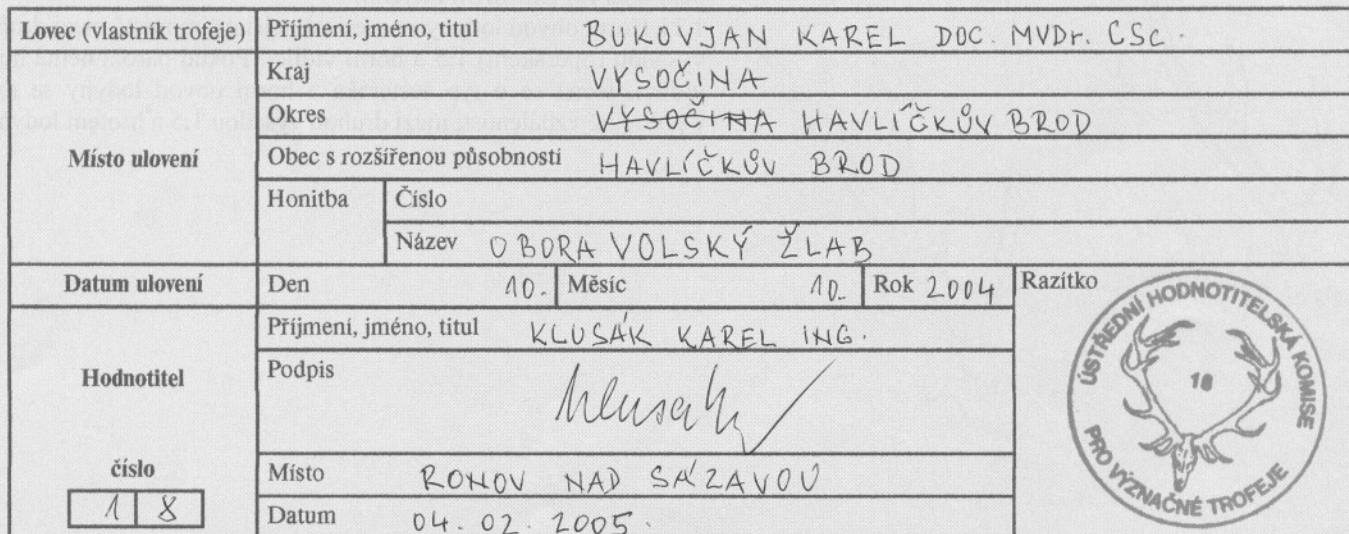 Lovec (vlastník trofeje) Příjmení, jméno, titul BUKOVJAN KAREL DOC. MVDr. CSc.
Kraj VYSOČINA
Okres VYSOČINA HAVLÍČKŮV BROD
Místo ulovení Obec s rozšířenou působností HAVLÍČKŮV BROD
Honitba Číslo
Název OBORA VOLSKÝ ŽLAB
Datum ulovení Den 10. Měsíc 10. Rok 2004 Razítko
Příjmení, jméno, titul KLUSÁK KAREL ING.
Hodnotitel Podpis
Klusák
číslo Místo RONOV NAD SÁZAVOU
1 8 Datum 04. 02. 2005.
ÚSTŘEDNÍ HODNOTITELSKÁ KOMISE
18
PRO VÝZNAČNÉ TROFEJE